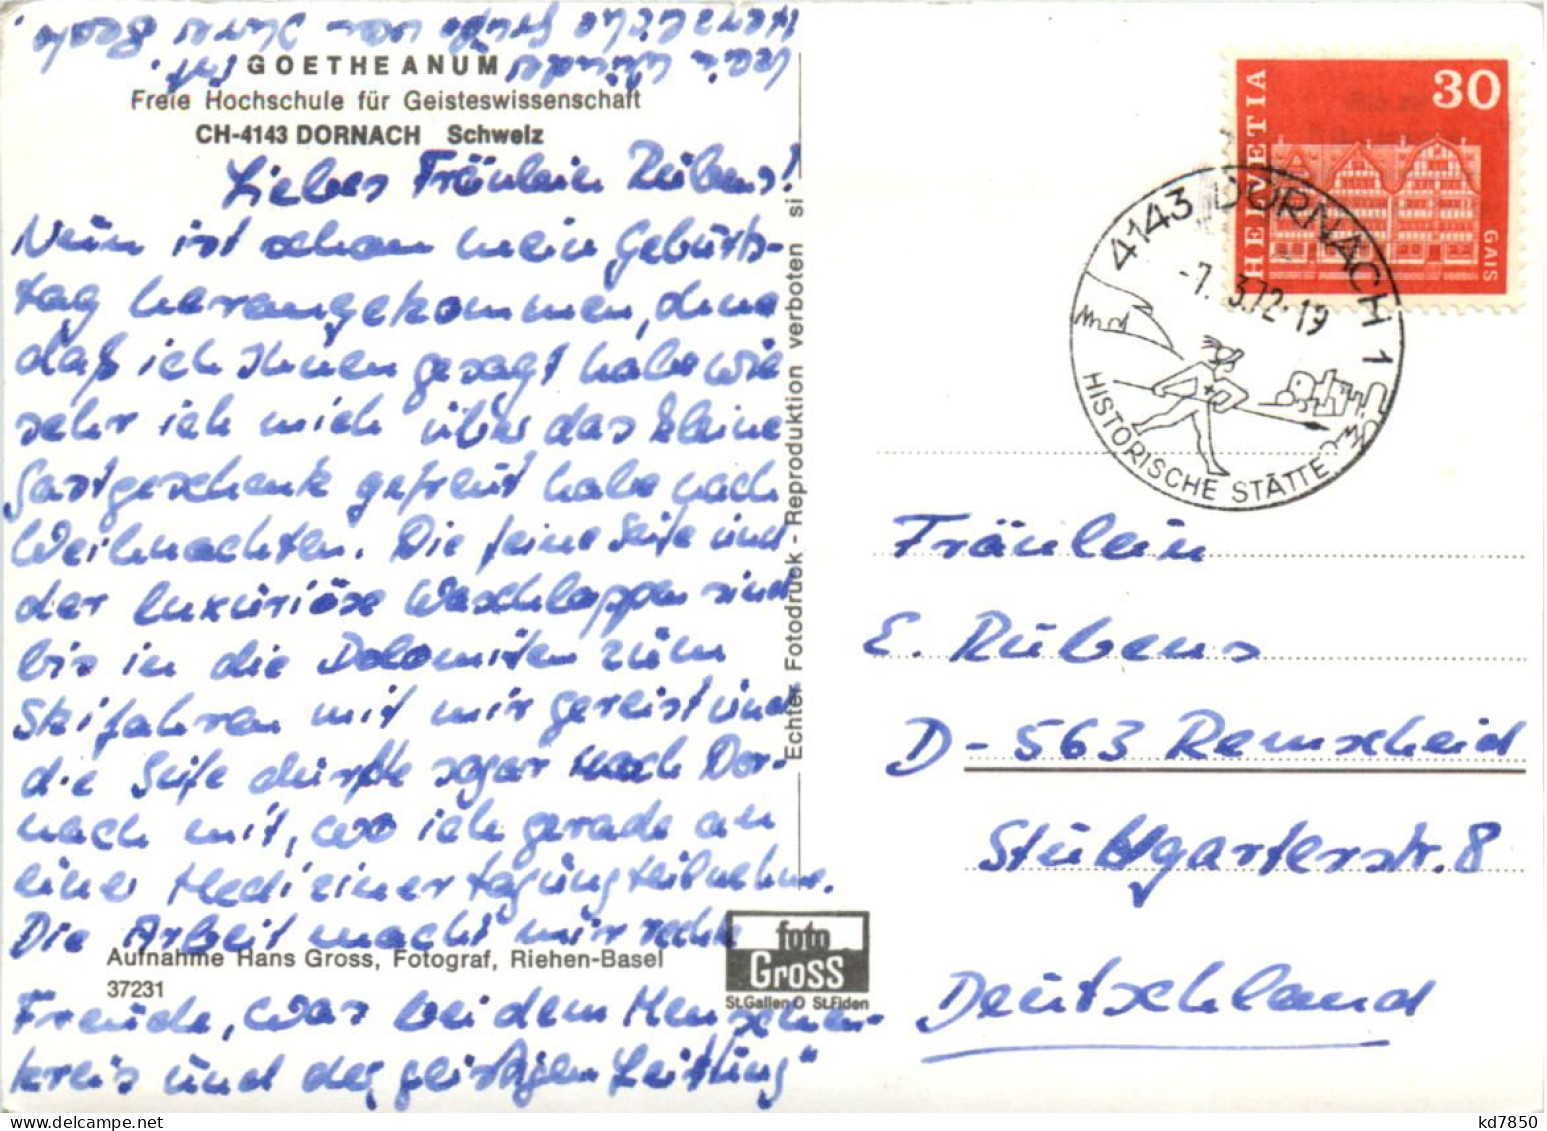 GOETHEANUM
Freie Hochschule für Geisteswissenschaft
CH-4143 DORNACH Schweiz
Liebes Fräulein Rübens!
Nun ist schon mein Geburts-
tag herangekommen, ohne
daß ich Ihnen gesagt habe wie
sehr ich mich über das kleine
Gastgeschenk gefreut habe nach
Weihnachten. Die feine Seife und
der luxuriöse Waschlappen sind
bis in die Dolomiten zum
Skifahren mit mir gereist und
die Seife durfte sogar nach Dor-
nach mit, wo ich gerade an
einer Medizinertagung teilnehme.
Die Arbeit macht mir rechte
Freude, was bei dem Menschen-
kreis und der geistigen Leitung
kein Wunder ist.
Herzliche Grüße von Ihrer
Aufnahme Hans Gross, Fotograf, Riehen-Basel
37231
foto
Gross
St.Gallen O St.Fiden
Echter Fotodruck - Reproduktion verboten si
HELVETIA
30
GAIS
4143 DORNACH 1
-7. 3.72-19
HISTORISCHE STÄTTE
Fräulein
E. Rübens
D-563 Remscheid
Stuttgarterstr. 8
Deutschland
kd7850